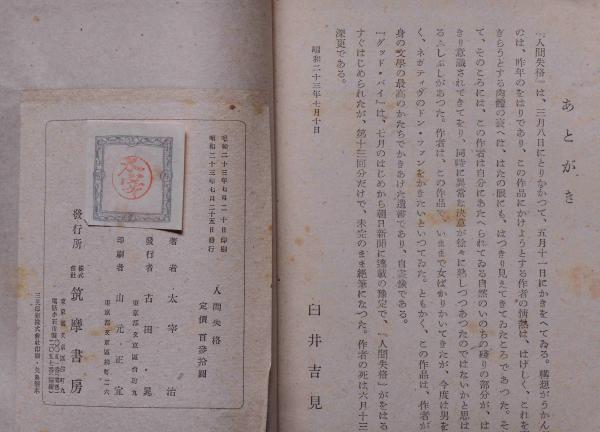 あとがき
「人間失格」は、三月八日にとりかかつて、五月十一日にかきをへてゐる。構想がうかん
のは、昨年のをはりであり、この作品にかけようとする作者の情熱は、はげしく、これを
ぎらうとする肉體の衰へは、はたの眼にも、はつきり見えてきてゐたところであつた。そ
て、そのころには、この作者は自分にあたへられてゐる自然のいのちの殘りの部分が、は
きり意識されてきてをり、同時に異常な決意が徐々に熟しつつあつたのではないかと思は
るふしぶしがあつた。作者は、この作品で、いままで女ばかりかいてきたが、今度は男を
く、ネガティヴのドン・ファンをかきたいといつてゐた。ともかく、この作品は、作者が
身の文學の最高のかたちでかきあげた遺書であり、自畫像である。
「グッド・バイ」は、七月のはじめから朝日新聞に連載の豫定で、「人間失格」ががをはる
すぐはじめられたが、第十三回分だけで、未完のまま絕筆になつた。作者の死は六月十三
深更である。
昭和二十三年七月十日
臼井吉見
昭和二十三年七月二十日印刷
昭和二十三年七月二十五日發行
人間失格
定價 百參拾圓
著者 太宰治
東京都文京區台町九
發行者 古田晁
東京都文京區柳町二六
印刷者 山元正宜
發行所 株式會社 筑摩書房
東京都文京區台町九
太宰